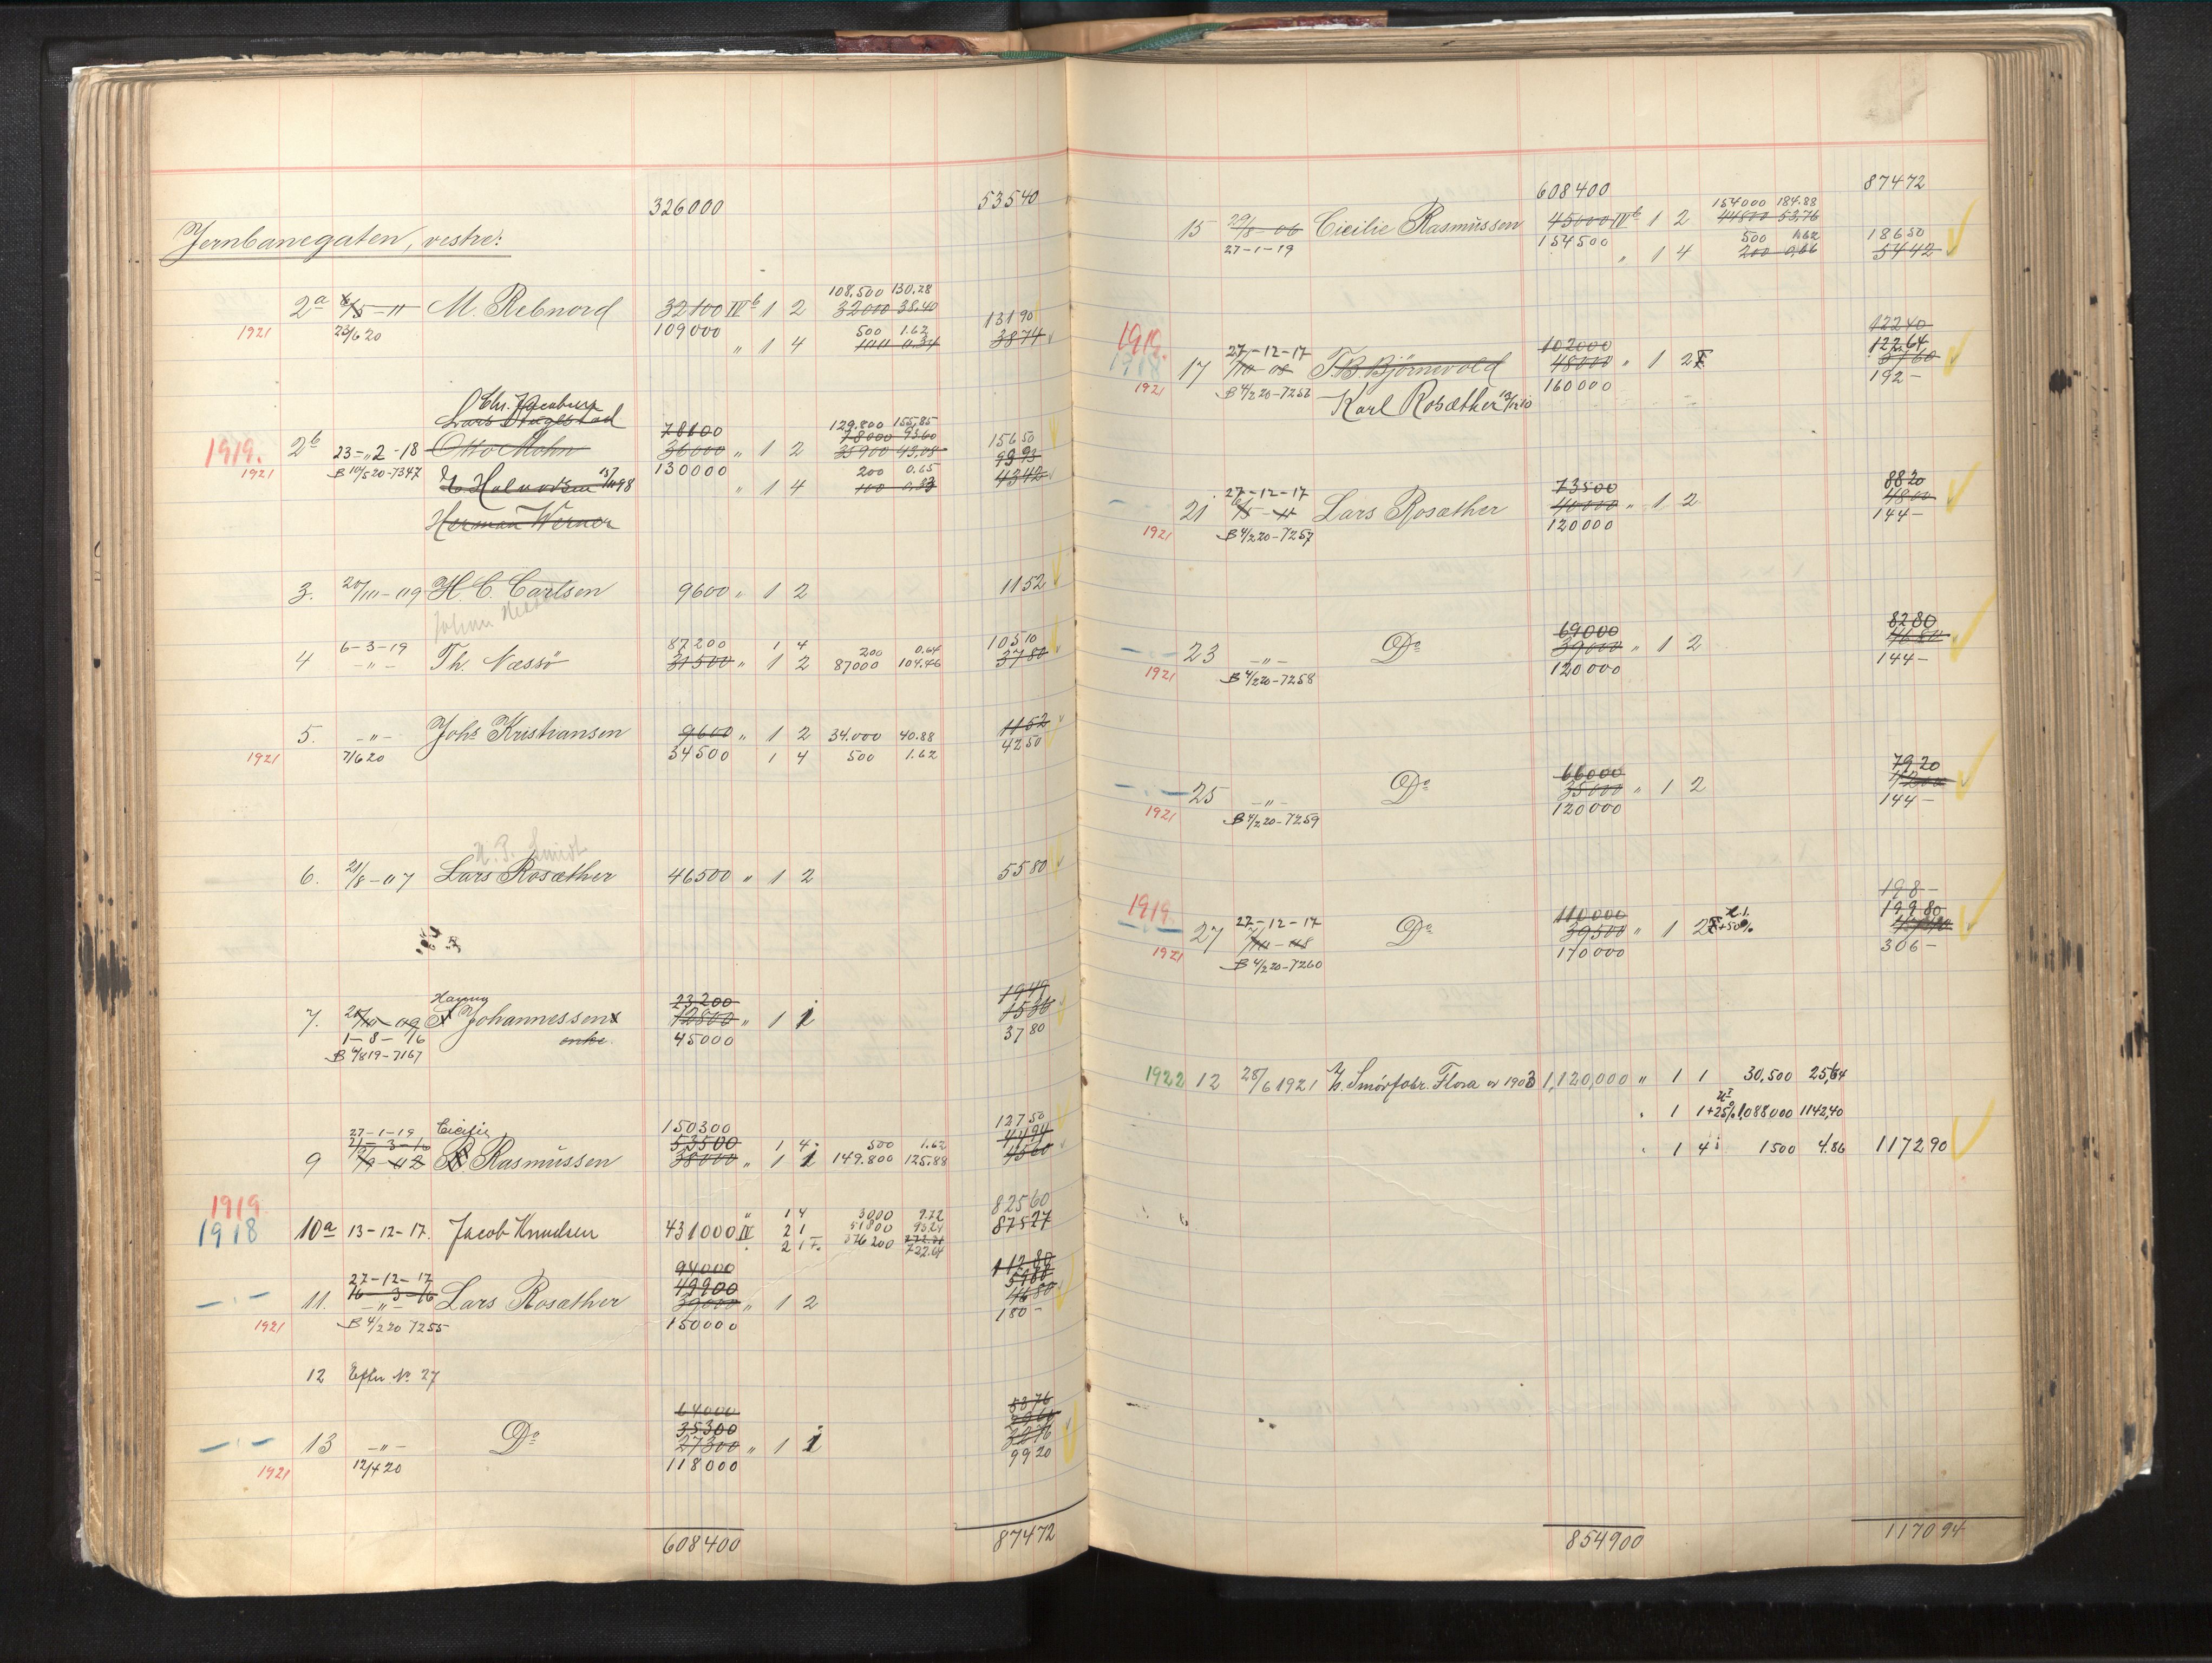 326000 53540
Jernbanegaten, vestre:
108,500 130.28
2a 6/5 - 11 M. Rebnord 32100 IVb 1 2 32000 38.40 13190
1921 23/6 20 109000 " 1 4 500 1.62 3874
100 0.34
Chr. Jacobsen
Lars
78100 129.800 155,85
1919. 2b 23-2-18 Otto Mohn 36000 " 1 2 78000 9360 15650
35900 43,08 9393
1921 B 10/5 20-7347 130000 200 0.65 4342
E. Halvorsen " 1 4 100 0.33
Herman Werner
3. 20/10-09 H. C. Carlsen 9600 " 1 2 1152
Johan
6-3-19 87200 1 4 200 0.64 10510
4 - " - Th. Næssö 31500 " 1 2 87000 104.46 3780
5. - " - Johs Kristiansen 9600 " 1 2 34.000 40.88 1152
1921 7/6 20 34500 1 4 500 1.62 4250
H. P. Smidt
6. 21/8-07 Lars Rosæther 46500 " 1 2 5580
Hanna 23200 1949
7. 20/10-09 Johannessen 12800 " 1 1 1536
1-8-16 enke. 45000 3780
B 4/8 19-7167
27-1-19 Cicilie 150300 12750
21-3-10 53500 1 4 500 1.62 4494
9 Rasmussen 38000 " 1 1 149.800 125.88 4560
1919 " 1 4 3000 9.72 82560
1918 10a 13-12-17. Jacob Knudsen 431000 IV 2 1 51800 93.24 87527
2 1 F. 376200 722.64
94000 11280
27-12-17 49900 5988
16-3-16
11. - " - Lars Rosæther 39000 " 1 2 4680
1921 B 4/2 20 7255 150000 180 -
12 Efter No 27
64000 5376
35300
13 - " - Do 27300 " 1 1
1921 12/4 20 118000 9920
608400 87472
608400 87472
154000 184.88
15 29/8-06 Cicilie Rasmussen 45000 IVb 1 2 44800 53,76
27-1-19 154500 500 1.62 18650
" 1 4 200 0,66 5442
12240
1919. 27-12-17 102000 12264
1918 17 T. B. Björnevold 48000 " 1 2 5760
1921 B 4/2 20-7256 160000 192 -
Karl Rosæther
27-12-17 73500 8820
21 6/5-11 Lars Rosæther 40000 " 1 2 4800
1921 B 4/2 20-7257 120000 144 -
69000 8280
23 - " - Do 39000 " 1 2 4680
1921 B 4/2 20-7258 120000 144 -
66000 7920
25 - " - Do 35000 " 1 2
1921 B 4/2 20-7259 120000 144 -
198 -
1919. 27-12-17 110000 19980
27 Do 39500 " 1 2 +50%
1921 B 4/2 20-7260 170000 306 -
1922 12 28/6 1921 Smörfabr. Flora 1,120,000 " 1 1 30,500 25,64
" 1 1+25% 1,088000 1142,40
" 1 4 1500 4.86 117290
854900 117094